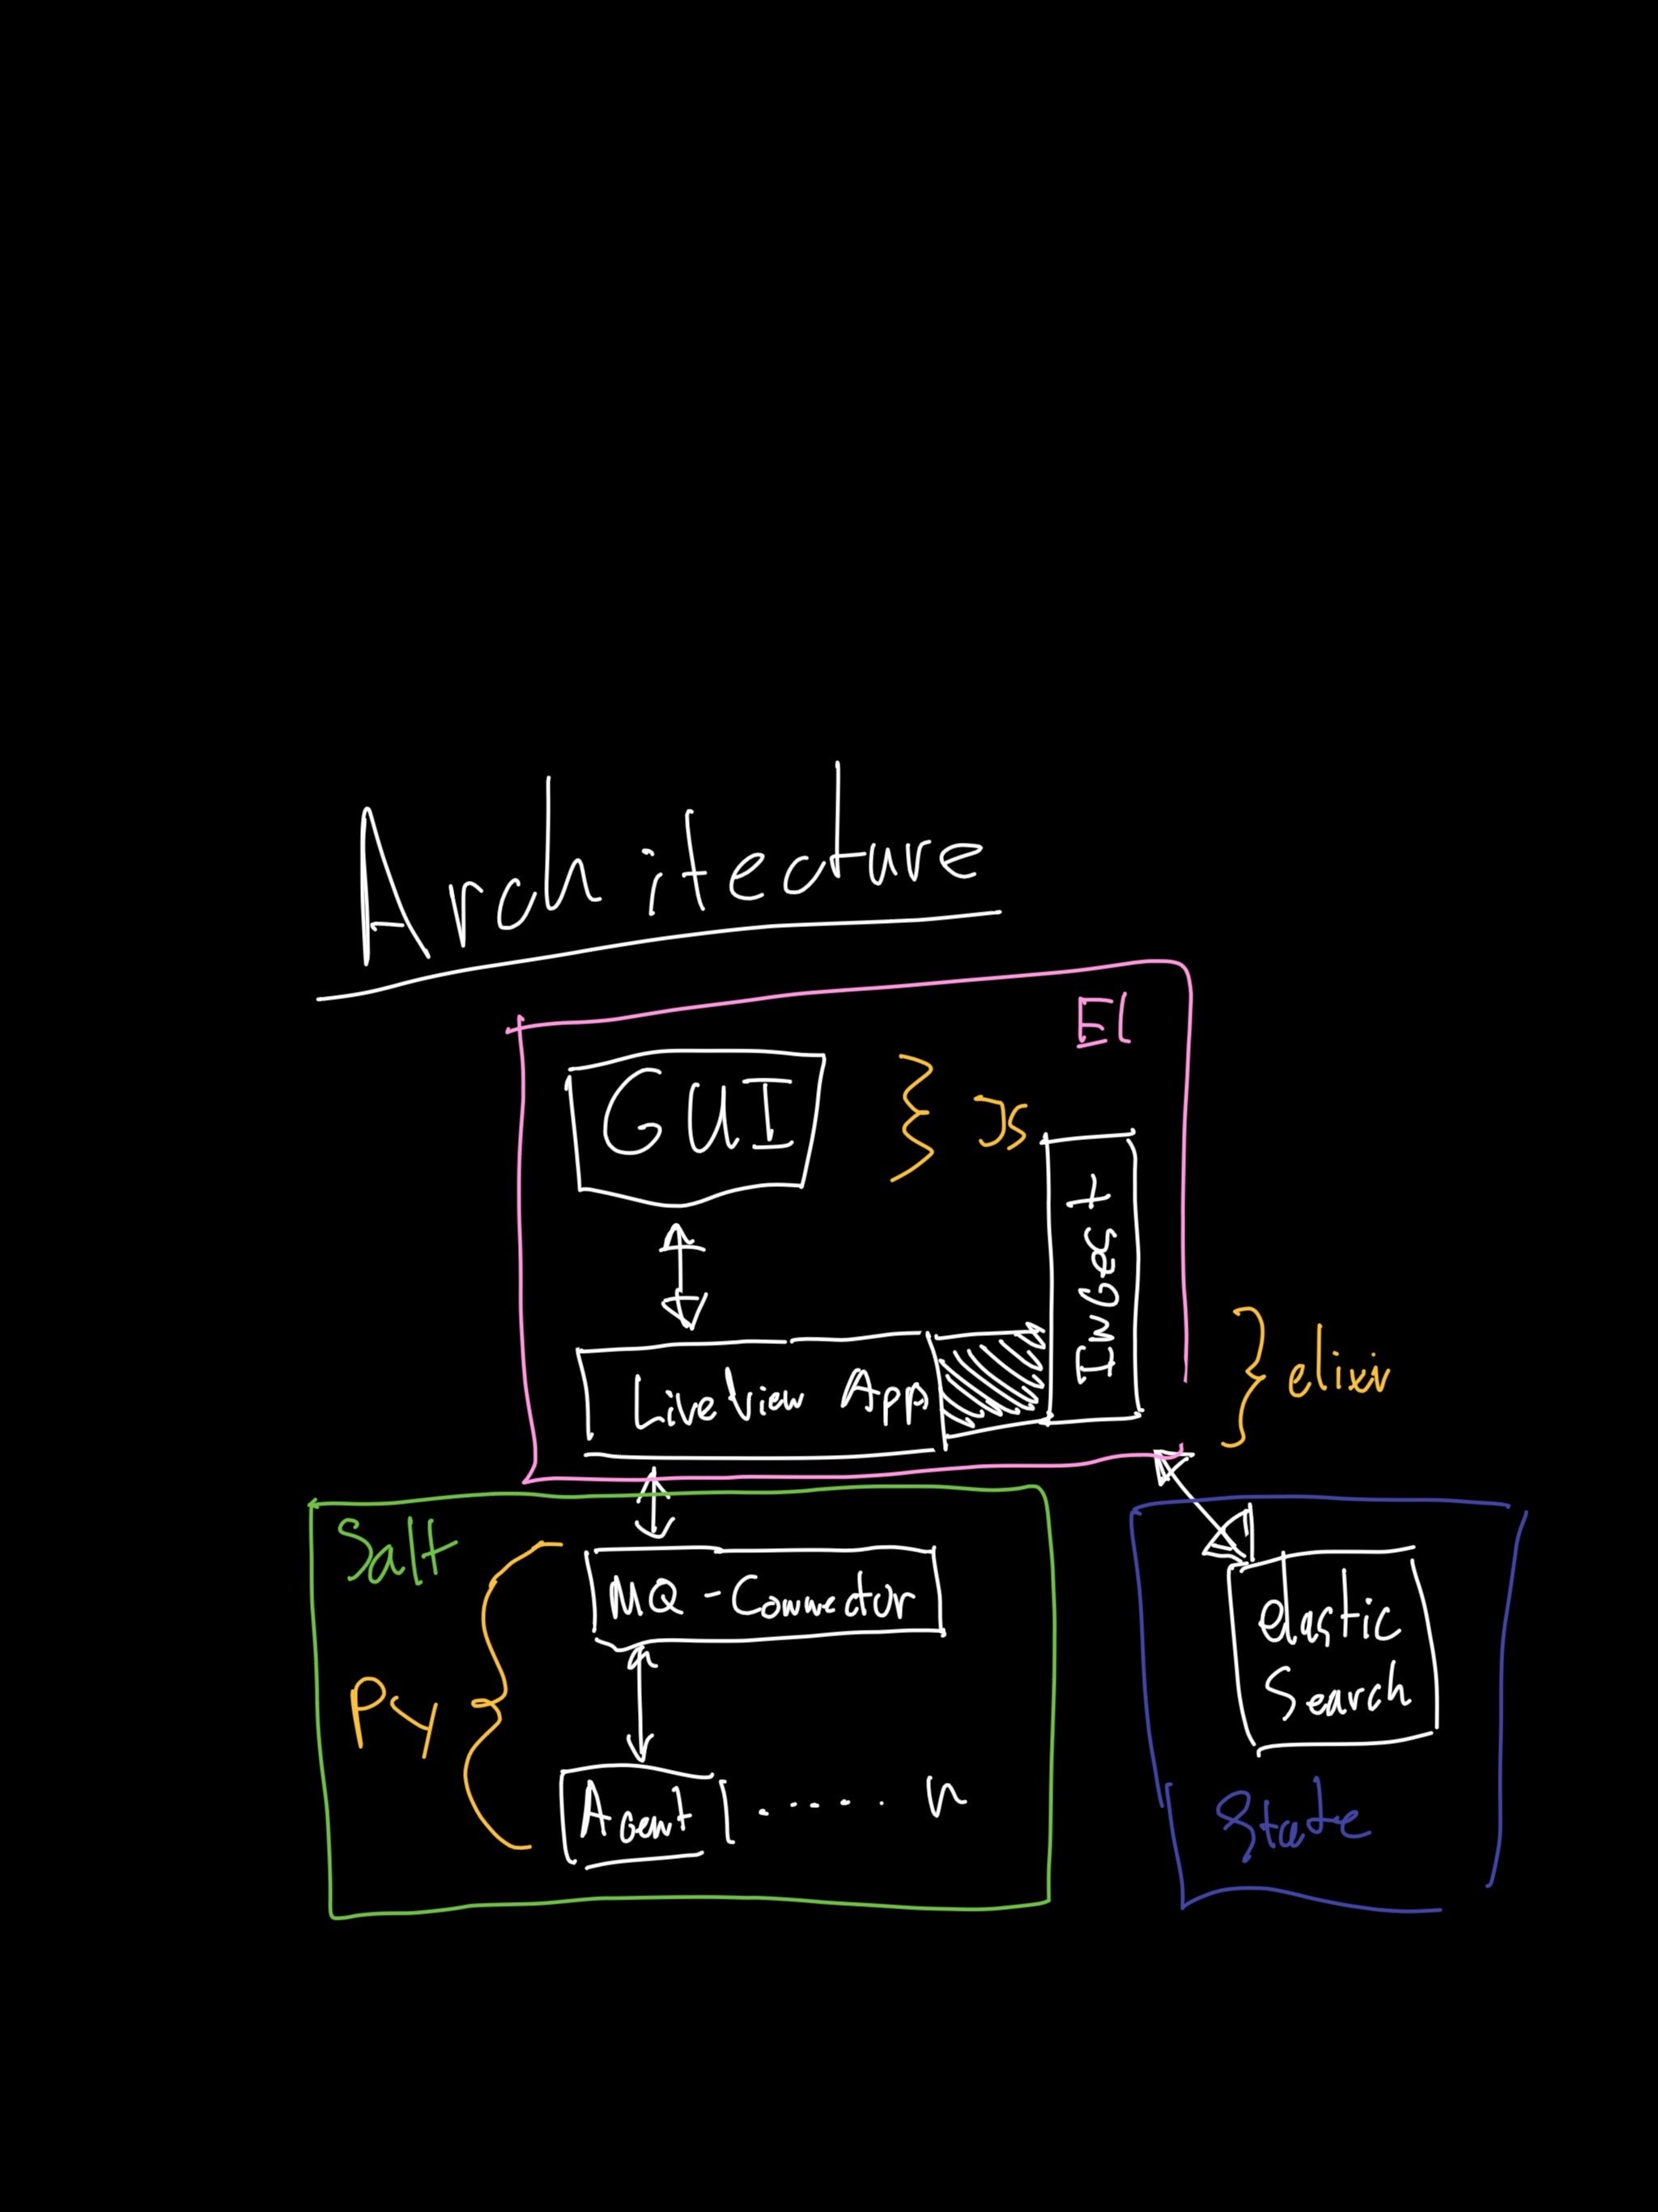 Architecture
El
GUI
JS
INGEST
LiveView App
elixir
Salt
MQ-Connector
Py
Agent ...... n
elastic
Search
State